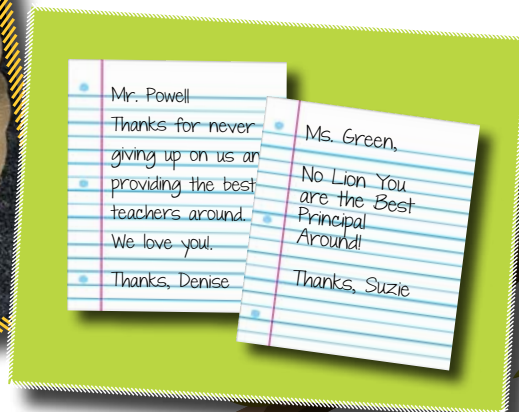 Mr. Powell
Thanks for never
giving up on us an
providing the best
teachers around.
We love you!.
Thanks, Denise
Ms. Green,
No Lion You
are the Best
Principal
Around!
Thanks, Suzie